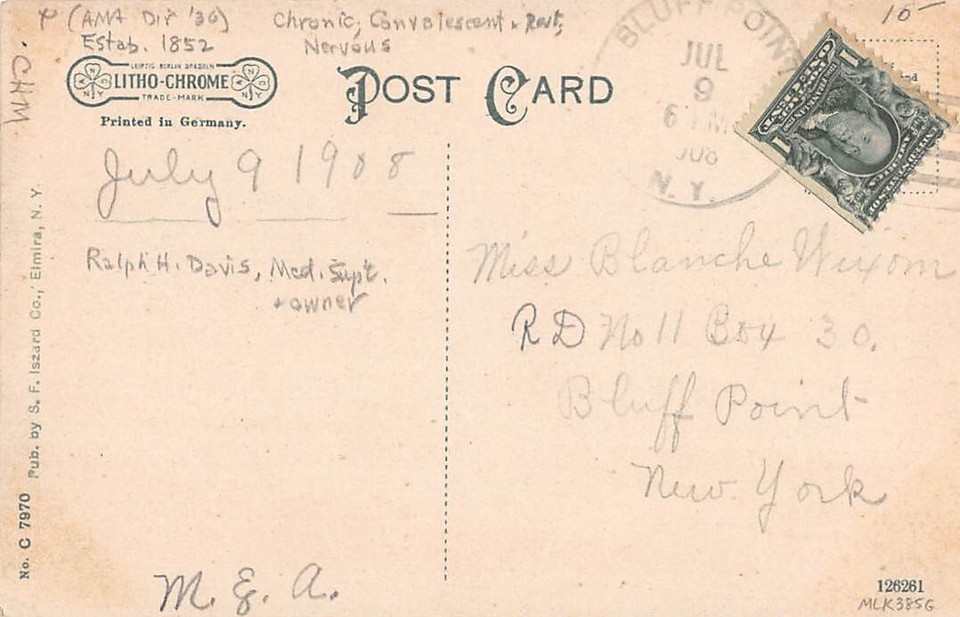 (AMA Dir '36)
Estab. 1852
Chronic, Convalescent + Rest,
Nervous
W.H.D.
LEIPZIG BERLIN DRESDEN
LITHO-CHROME
TRADE-MARK
Printed in Germany.
POST CARD
BLUFF POINT
JUL
9
N. Y.
10-
July 9 1908
Ralph H. Davis, Med. Supt.
+ owner
Miss Blanche Wixom
RD No 11 Box 30.
Bluff Point
New York
M. E. A.
No. C 7970 Pub. by S. F. Iszard Co., Elmira, N. Y.
126261
MLK385G